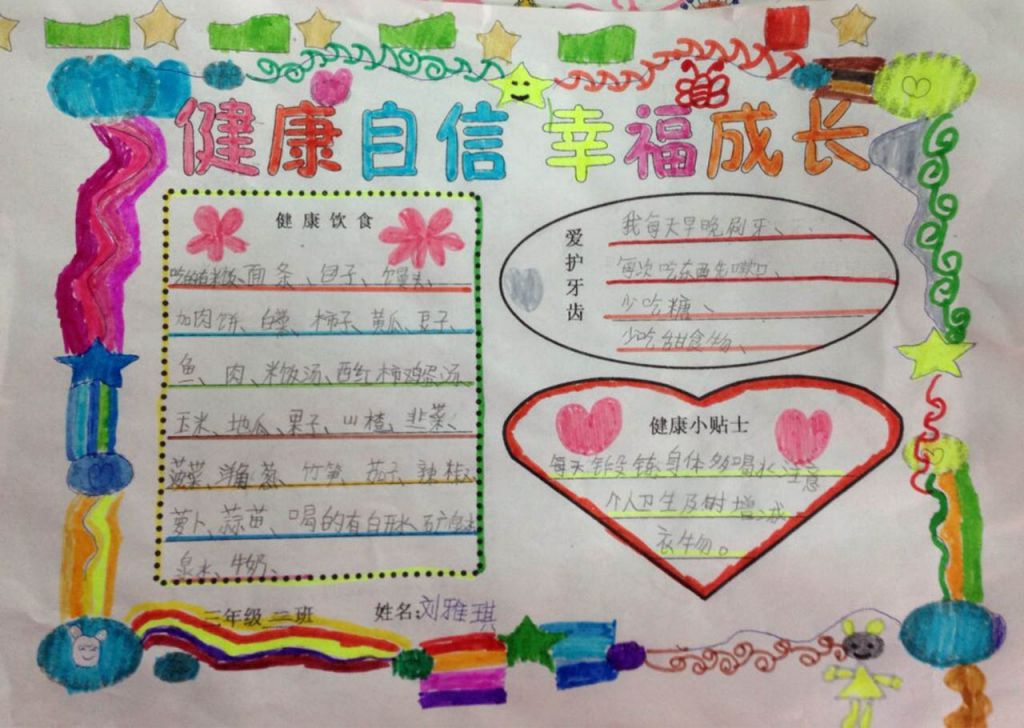 健康自信 幸福成长
健康饮食
吃的有米饭、面条、包子、馒头、
加肉饼、白菜、柿子、黄瓜、豆子、
鱼、肉、米饭汤、西红柿鸡蛋汤、
玉米、地瓜、果子、山楂、韭菜、
菠菜、洋葱、竹笋、茄子、辣椒、
萝卜、蒜苗、喝的有白开水、矿
泉水、牛奶、
爱护牙齿
我每天早晚刷牙、
每次吃东西先嗽口、
少吃糖、
少吃甜食物、
健康小贴士
每天锻炼身体多喝水、注意
个人卫生及时增减
衣物。
二班
姓名:刘雅琪